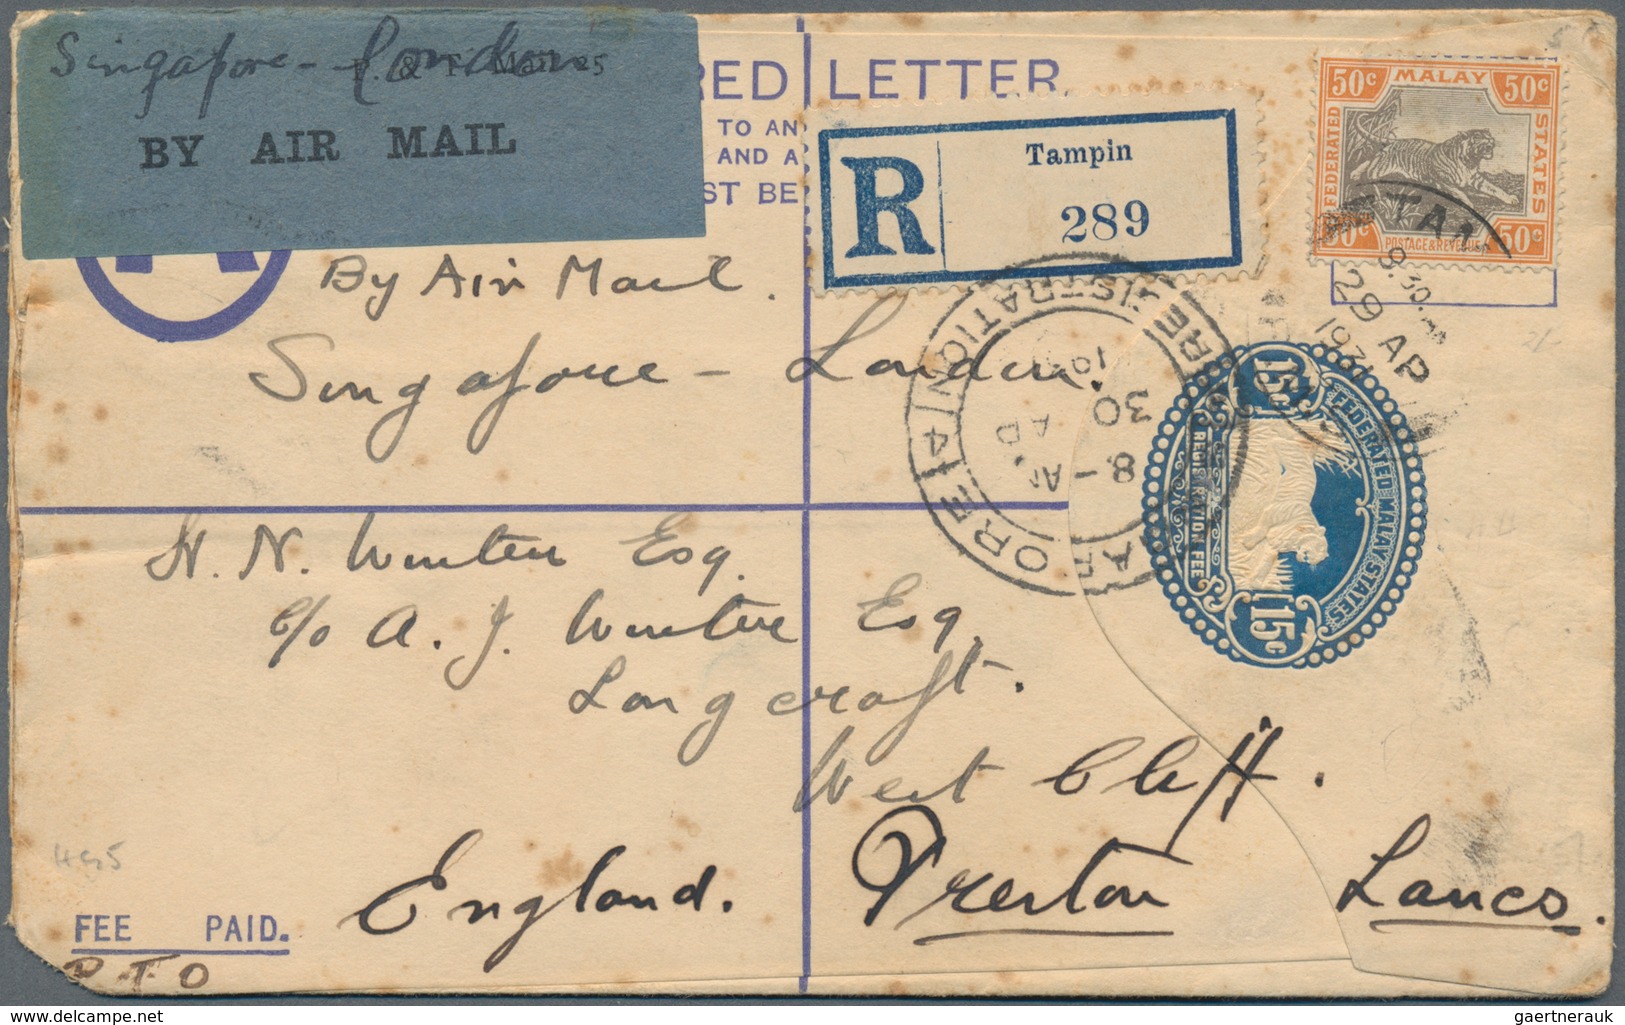 Singapore - London
P. & T. Mail 25
BY AIR MAIL
RED LETTER.
TO AN
AND A
ST BE
R
Tampin
289
50c MALAY 50c
FEDERATED
STATES
50c POSTAGE & REVENUE 50c
TAM
9.30 AM
29 AP
By Air Mail.
Singapore - London.
ORE
REGISTRATION
8 - AM
30
15c
FEDERATED MALAY STATES
REGISTRATION FEE
15c
H. N. Winter Esq.
c/o A. J. Winter Esq.
Longcroft.
West Cliff.
Preston Lancs.
England.
FEE PAID.
P T O
gaertnerauk